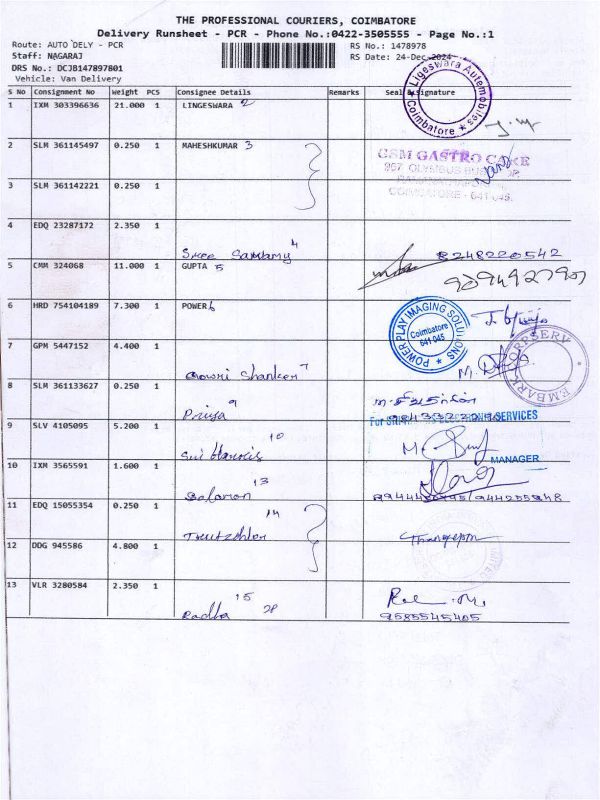 THE PROFESSIONAL COURIERS, COIMBATORE
Delivery Runsheet - PCR - Phone No.:0422-3505555 - Page No.:1
Route: AUTO DELY - PCR RS No.: 1478978
Staff: NAGARAJ RS Date: 24-Dec-2024
DRS No.: DCJB147897801
Vehicle: Van Delivery
S No Consignment No Weight PCS Consignee Details Remarks Seal & Signature
Ligeswara Automobiles
Coimbatore
1 IXM 303396636 21.000 1 LINGESWARA 2
2 SLM 361145497 0.250 1 MAHESHKUMAR 3
GSM GASTRO CARE
957 OLYMBUS
3 SLM 361142221 0.250 1
COIMBATORE - 641 045.
4 EDQ 23287172 2.350 1
Sree 4 8248220542
5 CMM 324068 11.000 1 GUPTA 5
6 HRD 754104189 7.300 1 POWER 6
POWER PLAY IMAGING SOLUTIONS
Coimbatore
641 045
7 GPM 5447152 4.400 1
Gowri Shanker 7
8 SLM 361133627 0.250 1
Priya 9
SERVICES
9 SLV 4105095 5.200 1
10
MANAGER
10 IXM 3565591 1.600 1
13
11 EDQ 15055354 0.250 1
14
12 DDG 945586 4.800 1
13 VLR 3280584 2.350 1
Radha 15 28
9585545405